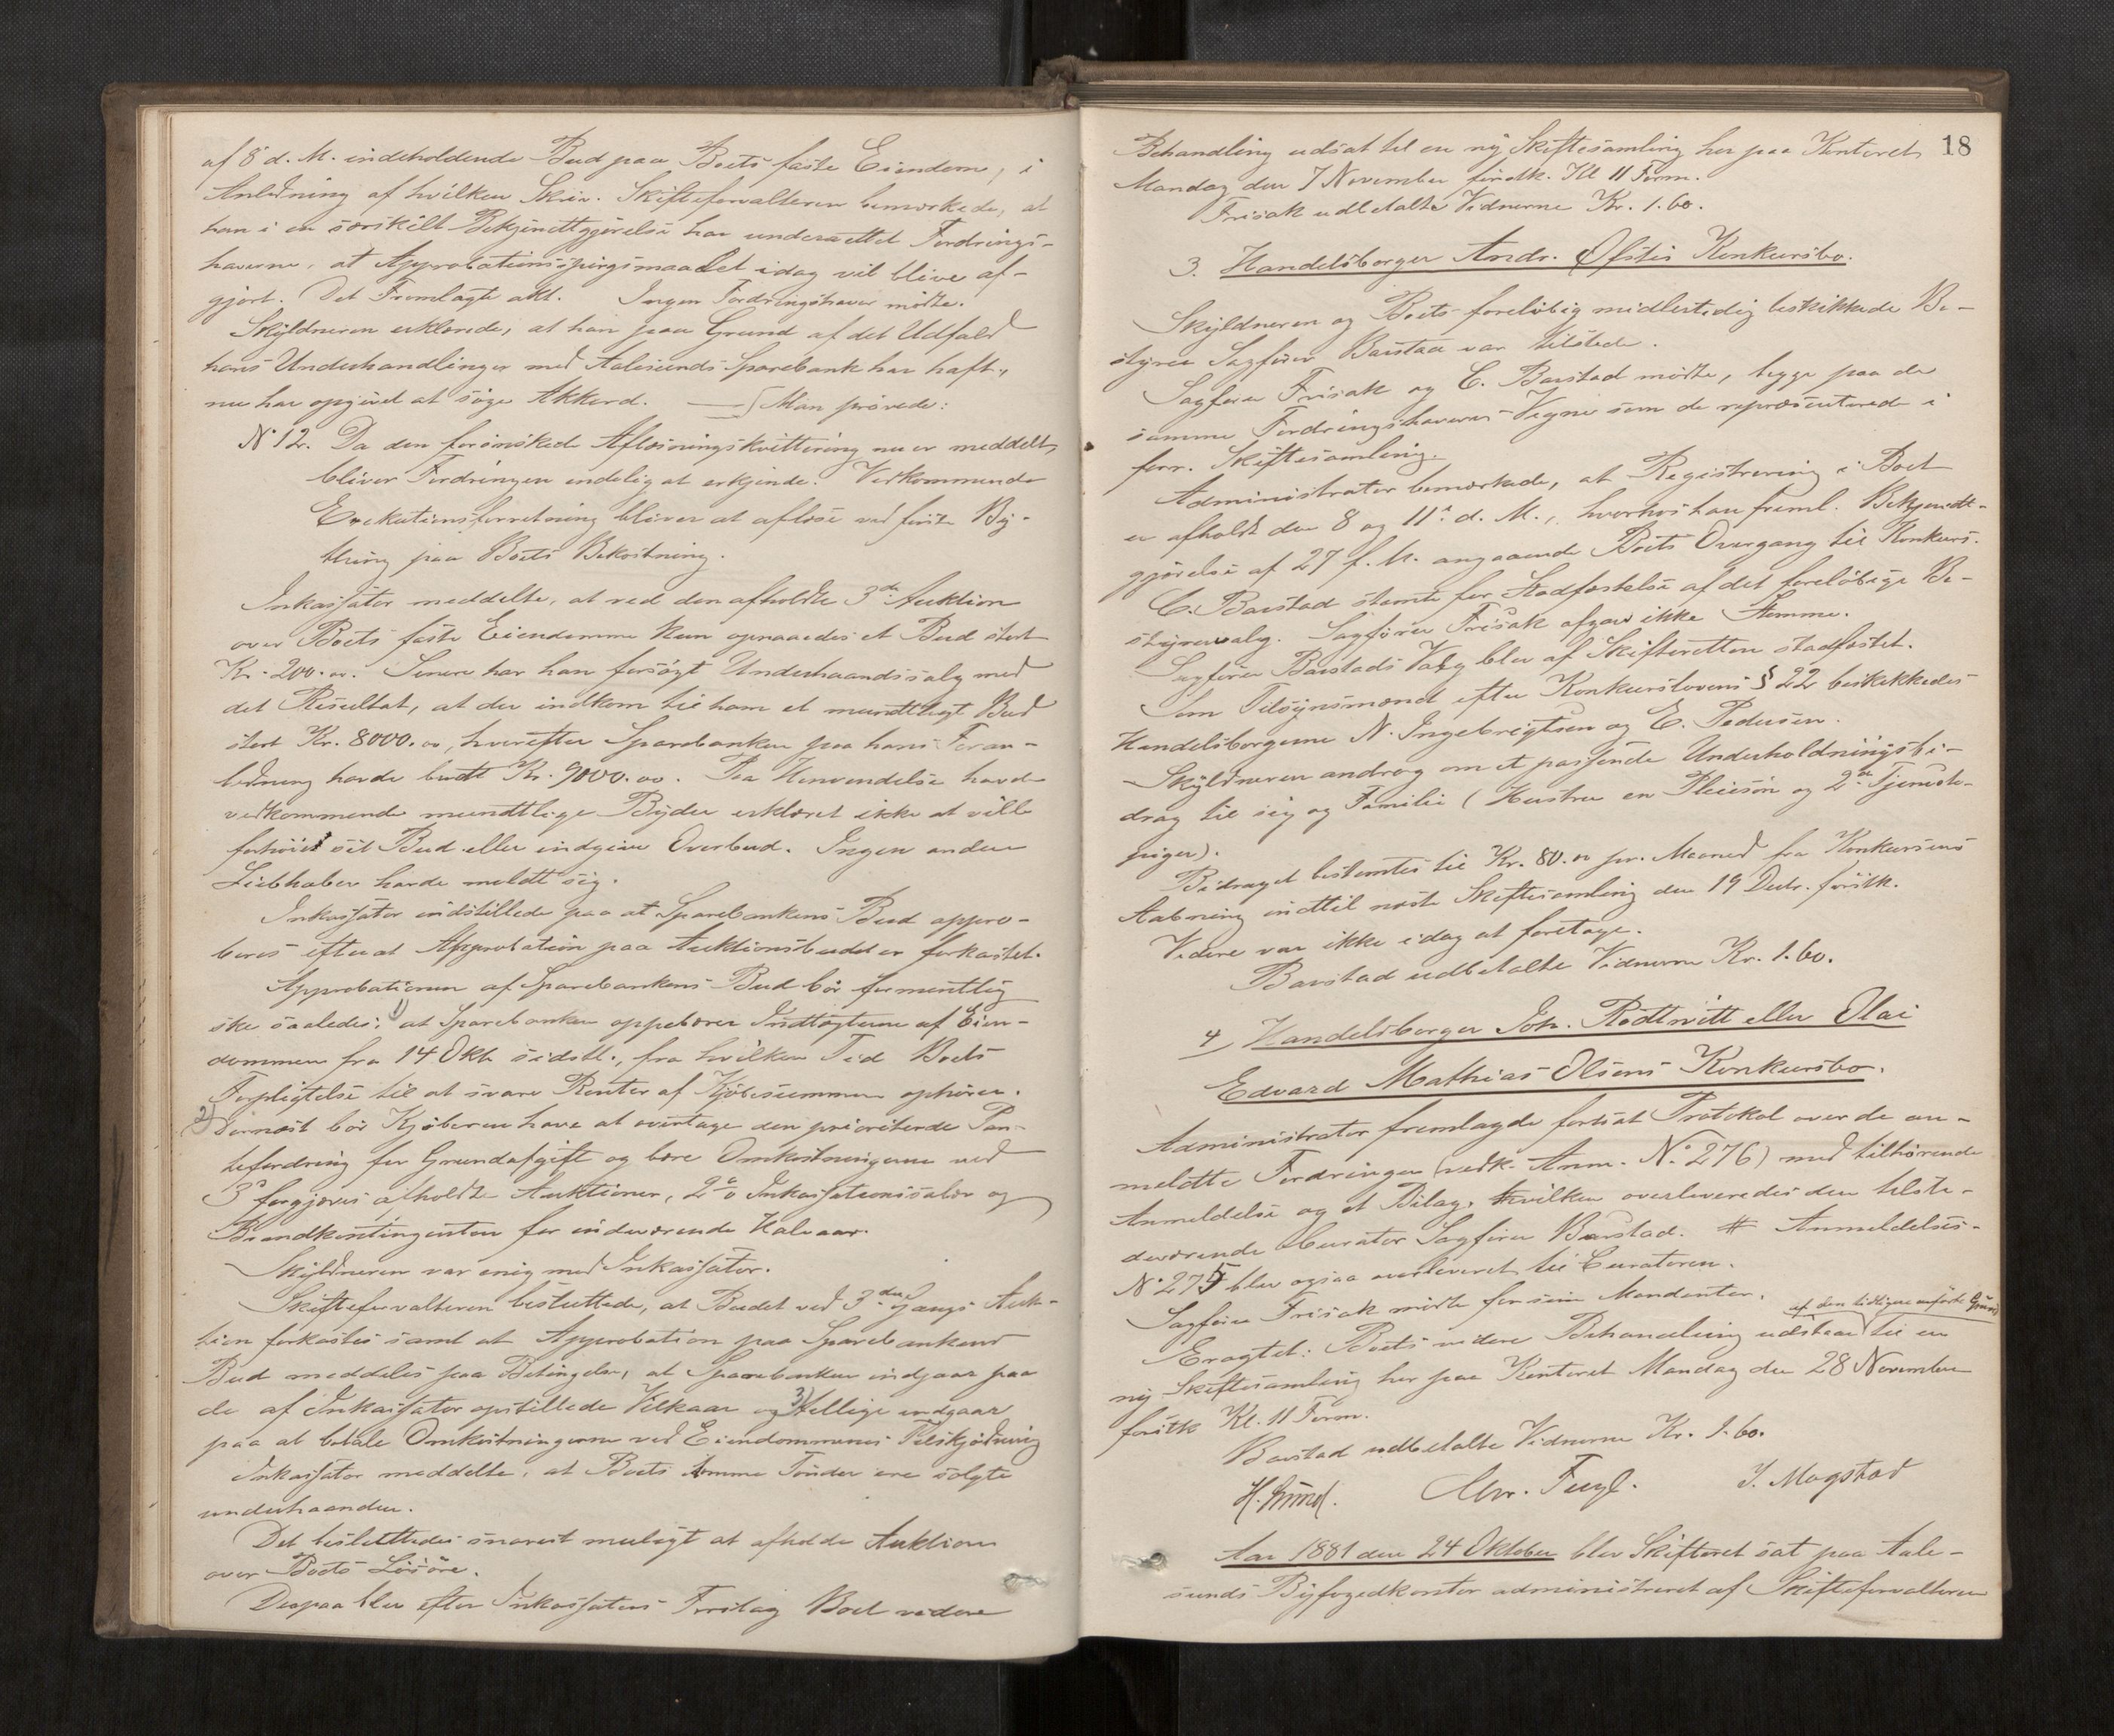 af 8 d. M. indeholdende Bud paa Boets faste Eiendom, i
Anledning af hvilken Skriv. Skifteforvalteren bemærkede, at
han i en særskilt Bekjendtgjørelse har underrettet Fordrings-
haverne, at Approbationsspørgsmaalet idag vil blive af-
gjort. Det Fremlagte akt. Ingen Fordringshaver mødte.
Skyldneren erklærede, at han paa Grund af det Udfald
hans Underhandlinger med Aalesunds Sparebank har haft,
nu har opgivet at søge Akkord. Man prøvede:
No 12. Da den forønskede Aflæsningskvittering nu er meddelt,
bliver Fordringen endelig at erkjende. Vedkommende
Exekutionsforretning bliver at aflæse ved første By-
thing paa Boets Bekostning.
Inkassator meddelte, at ved den afholdte 3die Auktion
over Boets faste Eiendomme kun opnaaedes et Bud stort
Kr. 200.00. Senere har han forsøgt Underhaandssalg med
det Resultat, at der indkom til ham et mundtligt Bud
stort Kr. 8000.00, hvorefter Sparebanken paa hans Foran-
ledning havde budt Kr. 9000.00. Paa Henvendelse havde
vedkommende mundtlige Byder erklæret ikke at ville
forhøie sit Bud eller indgive Overbud. Ingen anden
Liebhaber havde meldt sig.
Inkassator indstillede paa at Sparebankens Bud appro-
beres efterat Approbation paa Auktionsbudet er forkastet.
Approbationen af Sparebankens Bud bør formentlig
ske saaledes: 1) at Sparebanken oppebærer Indtægterne af Eien-
dommen fra 14 Okt. sidstl., fra hvilken Tid Boets
Forpligtelse til at svare Renter af Kjøbesummen ophører.
2) Dernæst bør Kjøberen have at overtage den prioriterede Pan-
tefordring for Grundafgift og bære Omkostningerne ved
3de forgjæves afholdte Auktioner, 2de Inkassationssalær og
Brandkontingenten for indeværende Halvaar.
Skyldneren var enig med Inkassator.
Skifteforvalteren besluttede, at Budet ved 3die Gangs Auk-
tion forkastes samt at Approbation paa Sparebankens
Bud meddeles paa Betingelse, at Sparebanken indgaar paa
de af Inkassator opstillede Vilkaar og 3) tillige indgaar
paa at betale Omkostningerne ved Eiendommenes Tilskjødning
Inkassator meddelte, at Boets tomme Tønder ere solgte
underhaanden.
Det besluttedes snarest muligt at afholde Auktion
over Boets Løsøre.
Derpaa blev efter Inkassators Forslag Boets videre
18
Behandling udsat til en ny Skiftesamling her paa Kontoret
Mandag den 7 November førstk. Kl 11 Form.
Frisak udbetalte Vidnerne Kr. 1.60.
3. Handelsborger Andr. Øfstis Konkursbo.
Skyldneren og Boets foreløbig midlertidig beskikkede Be-
styrer Sagfører Barstad var tilstede.
Sagfører Frisak og C. Barstad mødte, begge paa de
samme Fordringshaveres Vegne som de repræsenterede i
forr. Skiftesamling.
Administrator bemærkede, at Registrering i Boet
er afholdt den 8 og 11te d. M., hvorhos han freml. Bekjendt-
gjørelse af 27 f. M. angaaende Boets Overgang til Konkurs.
C. Barstad stemte for Stadfæstelse af det foreløbige Be-
styrervalg. Sagfører Frisak afgav ikke Stemme.
Sagfører Barstads Valg blev af Skifteretten stadfæstet.
Som Tilsynsmænd efter Konkurslovens § 22 beskikkedes
Handelsborgerne N. Ingebrigtsen og E. Pedersen.
Skyldneren androg om et passende Underholdningsbi-
drag til sig og Familie (Hustru en Pleiesøn og 2de Tjeneste-
piger).
Bidraget bestemtes til Kr. 80.00 pr. Maaned fra Konkursens
Aabning indtil næste Skiftesamling den 19 Decbr. førstk.
Videre var ikke idag at foretage.
Barstad udbetalte Vidnerne Kr. 1.60.
4, Handelsborger Joh. Rødtwitt eller Olai
Edvard Mathias Olsens Konkursbo.
Administrator fremlagde fortsat Protokol over de an-
meldte Fordringer (vedk. Anm. No 276) med tilhørende
Anmeldelse og et Bilag, hvilken overleveredes den tilste-
deværende Curator Sagfører Barstad. # Anmeldelses-
No 275 blev ogsaa overleveret til Curatoren.
Sagfører Frisak mødte for sine Mandanter.
af den tidligere anførte Grund
Eragtet: Boets videre Behandling udstaar til en
ny Skiftesamling her paa Kontoret Mandag den 28 November
førstk Kl. 11 Form.
Barstad udbetalte Vidnerne Kr. 1.60.
Chr. Fugl. J. Magstad
Aar 1881 den 24 Oktober blev Skifteret sat paa Aale-
sunds Byfogedkontor administreret af Skifteforvalteren